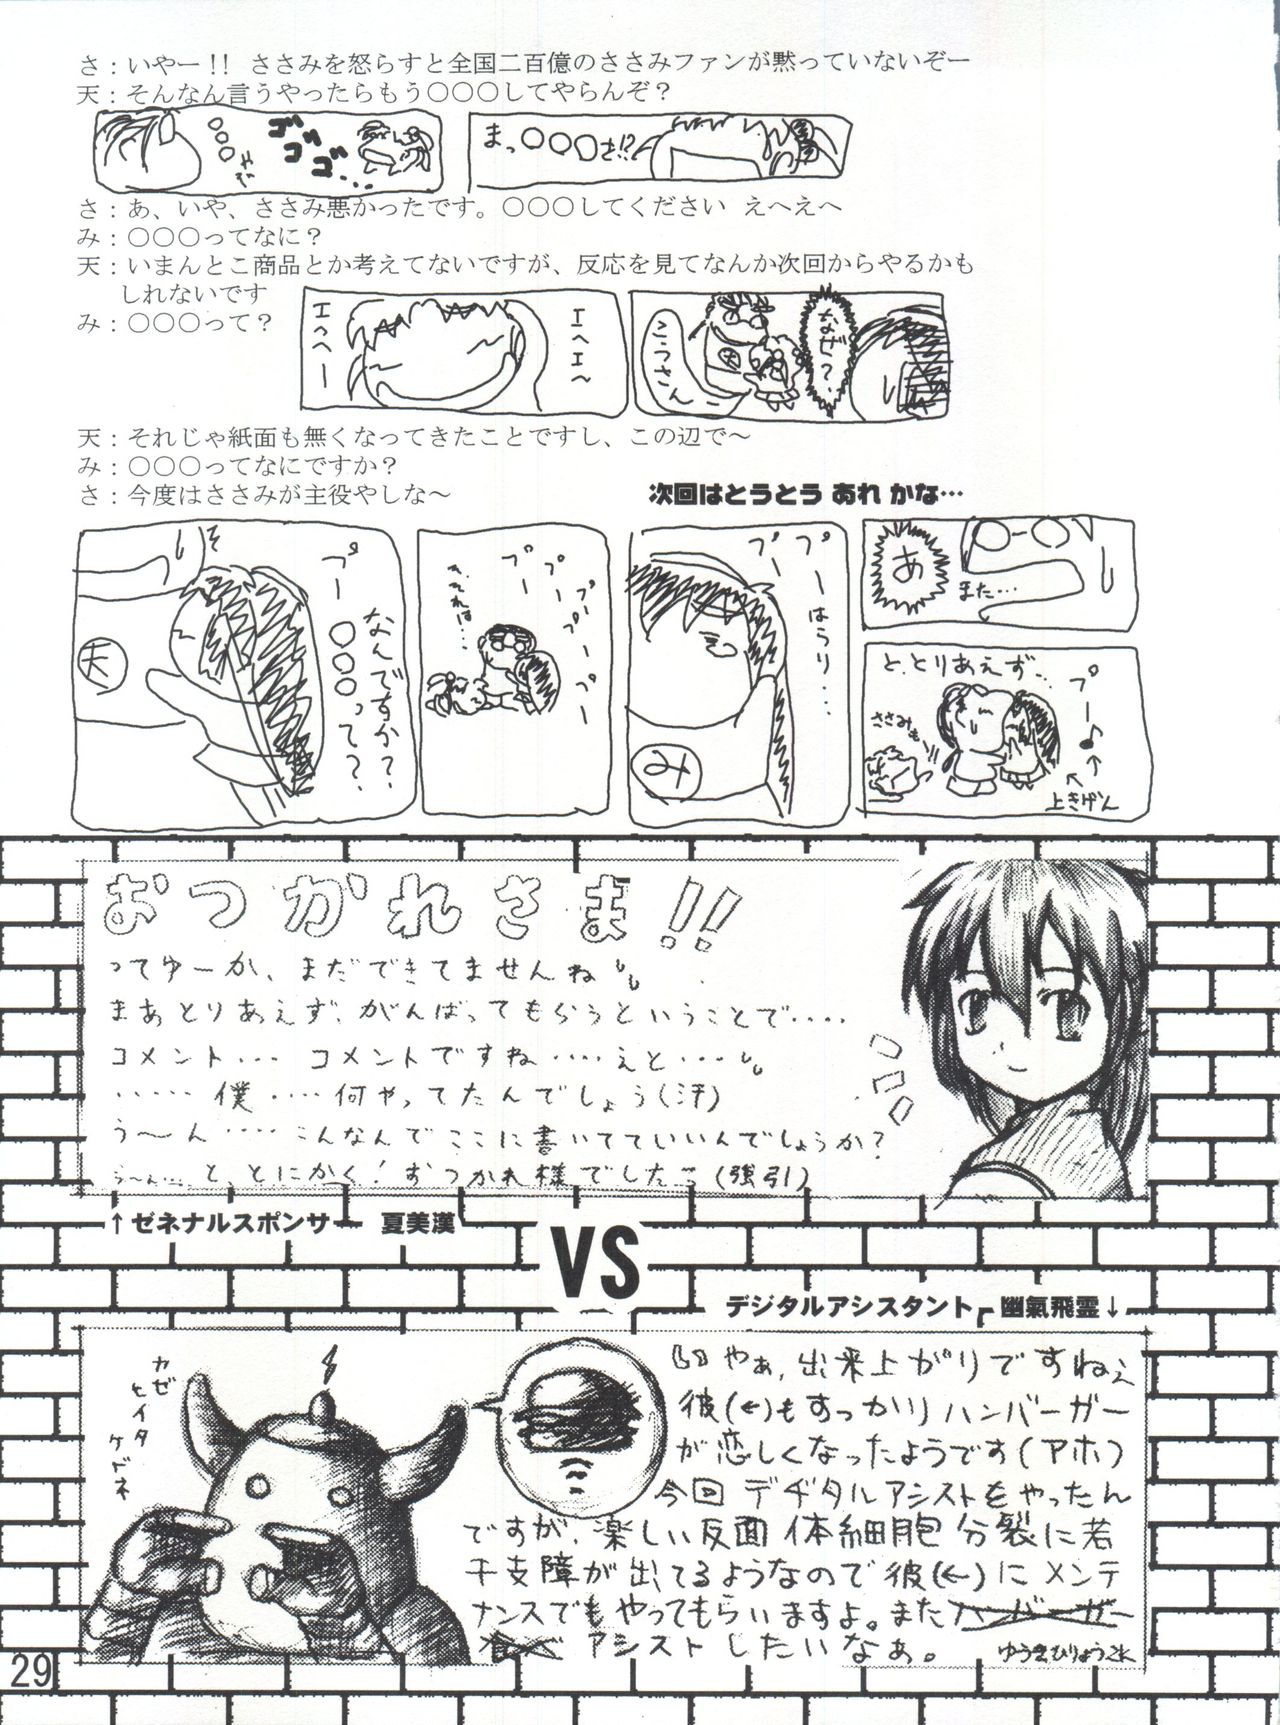 さ：いやー!! ささみを怒らすと全国二百億のささみファンが黙っていないぞー
天：そんなん言うやったらもう○○○してやらんぞ？
○○○
ゴゴゴゴ…
まっ○○○さ!?
さ：あ、いや、ささみ悪かったです。○○○してください えへえへ
み：○○○ってなに？
天：いまんとこ商品とか考えてないですが、反応を見てなんか次回からやるかも
しれないです
み：○○○って？
エヘヘー
エヘエ〜
なぜ？
天
天：それじゃ紙面も無くなってきたことですし、この辺で〜
み：○○○ってなにですか？
さ：今度はささみが主役やしな〜
次回はとうとう あれ かな…
なんですか？
プー○○○って？
天
そ、それは…
プー プー プープープー
プーはうり…
プー
み
あ
また…
と、とりあえず…
プー♪
ささみも
上きげん
おつかれさま!!
ってゆーか、まだできてませんね
まあとりあえず、がんばってもらうということで‥‥
コメント‥‥ コメントですね‥‥えと‥‥
‥‥‥僕‥‥何やってたんでしょう(汗)
う〜ん‥‥こんなんでここに書いてていいんでしょうか？
う〜ん… と、とにかく！おつかれ様でしたっ(強引)
↑ゼネナルスポンサー 夏美漢
VS
デジタルアシスタント 幽氣飛霊↓
カゼヒイタケドネ
いやぁ、出来上がりですねぇ
彼(←)もすっかりハンバーガー
が恋しくなったようです(アホ)
今回デヂタルアシストをやったん
ですが、楽しい反面体細胞分裂に若
干支障が出てるようなので彼(←)にメンテ
ナンスでもやってもらいますよ。またハンバーガー
食べ アシストしたいなぁ。
ゆうきひりょうこん
29